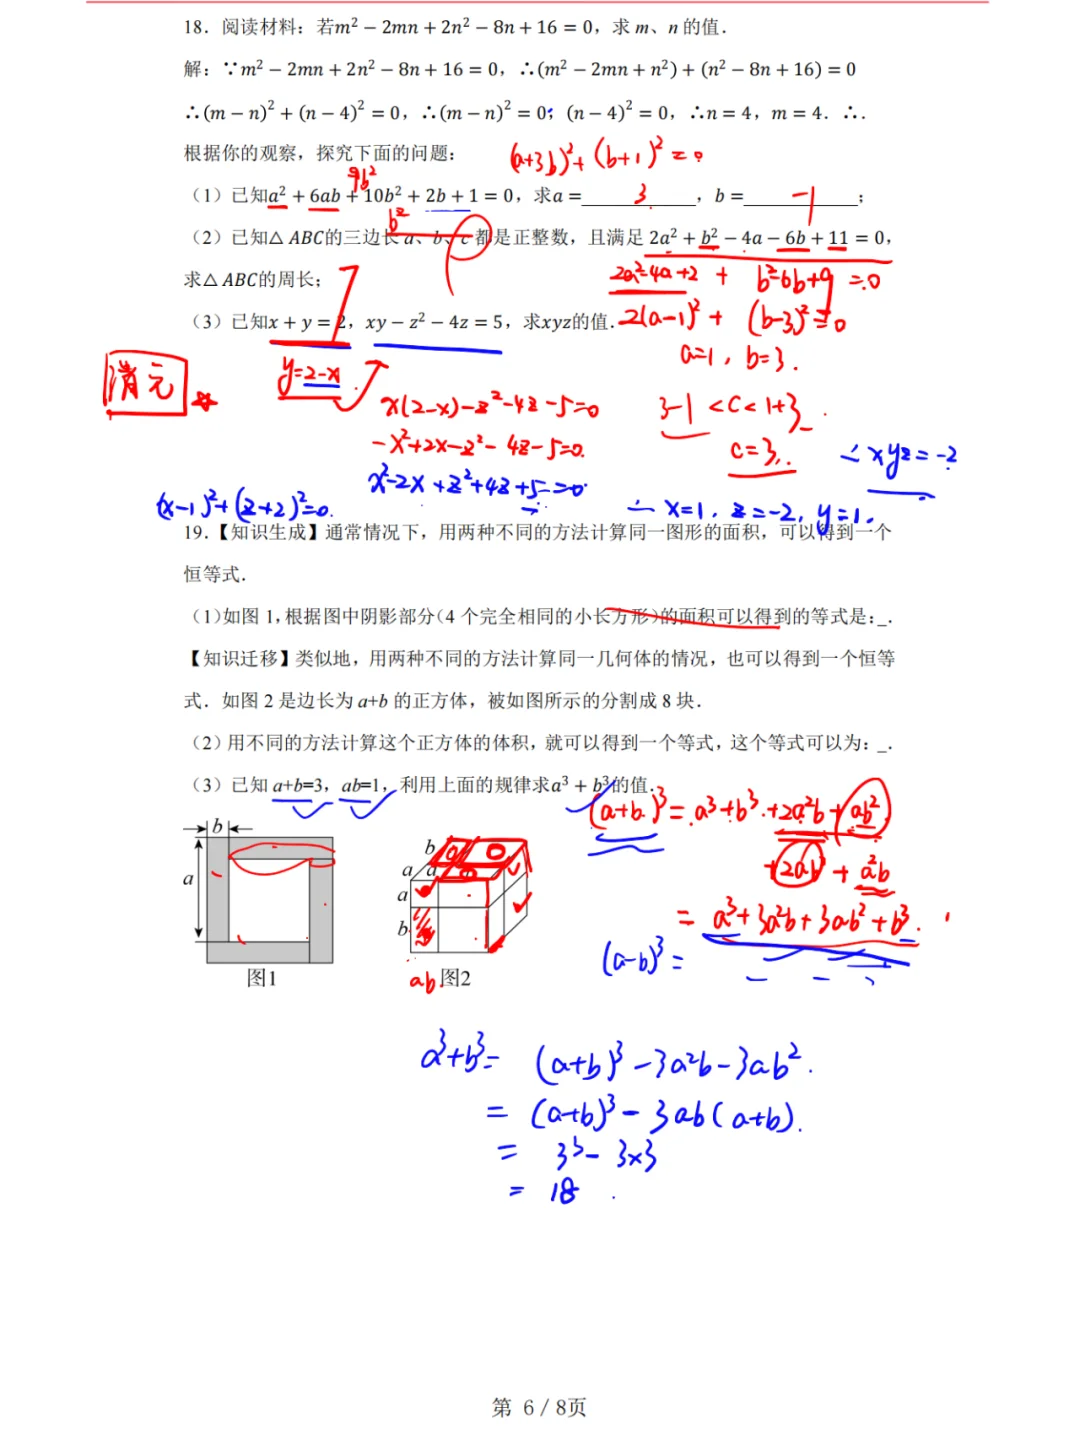 18．阅读材料：若m² − 2mn + 2n² − 8n + 16 = 0，求 m、n 的值．
解：∵m² − 2mn + 2n² − 8n + 16 = 0，∴(m² − 2mn + n²) + (n² − 8n + 16) = 0
∴(m − n)² + (n − 4)² = 0，∴(m − n)² = 0；(n − 4)² = 0，∴n = 4，m = 4．∴.
根据你的观察，探究下面的问题：
(a+3b)²+(b+1)²=0
9b²
b²
（1）已知a² + 6ab + 10b² + 2b + 1 = 0，求a = 3 ，b = -1 ；
（2）已知△ ABC的三边长 a、b、c 都是正整数，且满足 2a² + b² − 4a − 6b + 11 = 0，
求△ABC的周长；
7
2a²-4a+2 + b²-6b+9 =0
（3）已知x + y = 2，xy − z² − 4z = 5，求xyz的值．
2(a-1)² + (b-3)²=0
a=1, b=3.
消元
y=2-x
x(2-x)-z²-4z-5=0
3-1<c<1+3
-x²+2x-z²-4z-5=0.
c=3.
∴xyz=-2
x²-2x+z²+4z+5=0
(x-1)²+(z+2)²=0.
∴ x=1, z=-2, y=1.
19．【知识生成】通常情况下，用两种不同的方法计算同一图形的面积，可以得到一个
恒等式．
（1）如图 1，根据图中阴影部分（4 个完全相同的小长方形）的面积可以得到的等式是：_．
【知识迁移】类似地，用两种不同的方法计算同一几何体的情况，也可以得到一个恒等
式．如图 2 是边长为 a+b 的正方体，被如图所示的分割成 8 块．
（2）用不同的方法计算这个正方体的体积，就可以得到一个等式，这个等式可以为：_．
（3）已知 a+b=3，ab=1，利用上面的规律求a³ + b³的值．
(a+b)³=a³+b³+2a²b+ab²
+2ab²+a²b
=a³+3a²b+3ab²+b³
(a-b)³=
b
a
图1
b
a
a
a
b
ab
图2
a³+b³= (a+b)³-3a²b-3ab².
= (a+b)³-3ab(a+b).
= 3³-3×3
= 18
第 6 / 8页